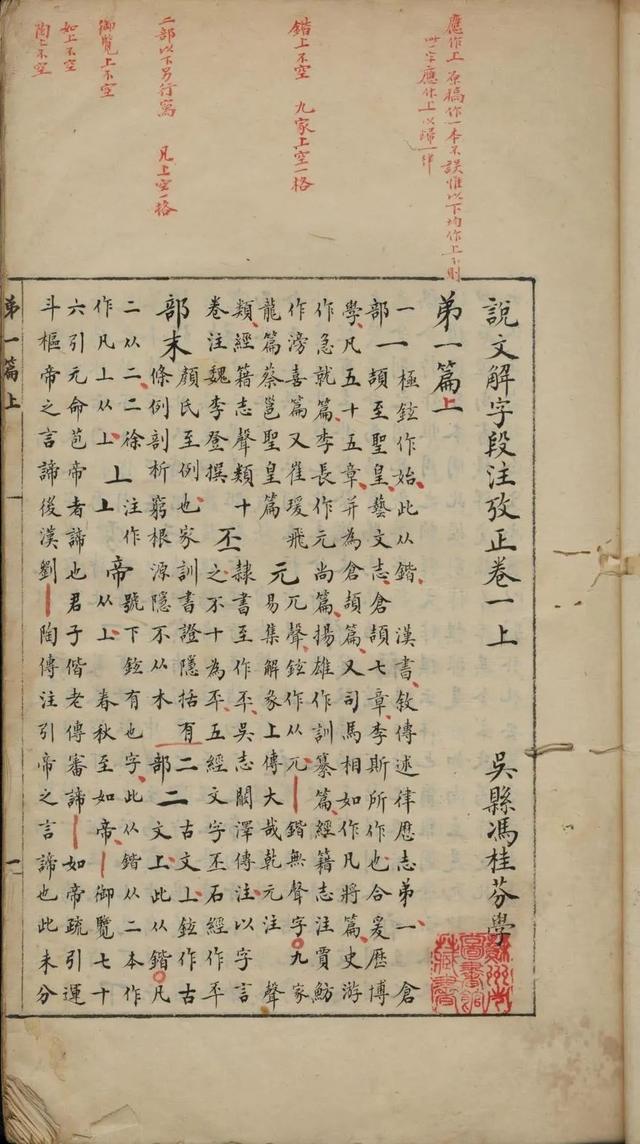 應作上 原稿作一本不誤惟以下均作上不則
此字應作上以歸一律
鍇上不空 九家上空一格
二部以下另行寫 凡上空一格
御覽上不空
如上不空
陶上不空
說文解字段注攷正卷一上 吳縣馮桂芬學
弟一篇上
一 一 極鉉作始此从鍇 漢書敘傳述律厯志弟一 倉
部 頡至聖皇藝文志倉頡七章李斯所作也合爰歷博
學凡五十五章并為倉頡篇又司馬相如作凡將篇史游
作急就篇李長作元尚篇揚雄作訓纂篇經籍志注賈魴
作滂喜篇又崔瑗飛 元 兀聲鉉作从兀鍇無聲字 九家
龍篇蔡邕聖皇篇 易集解彖上傳大哉乾元注 聲
類經籍志聲類十 丕 隸書至作平吳志闞澤傳注以字言
卷注魏李登撰 之不十為平五經文字丕石經作平
部末 顏氏至例也家訓書證隱括有 二 古文上鉉作古
條例剖析窮根源隱不从木 部 二 文上此从鍇 凡
二从二二徐 上 注作號下鉉有也字此从鍇从二本作
作凡上从上 上 帝 从上 春秋至如帝御覽七十
六引元命苞帝者諦也君子偕老傳審諦如帝疏引運
斗樞帝之言諦後漢劉陶傳注引帝之言諦也此未分
弟一篇上 一
蘇州市圖書館藏書